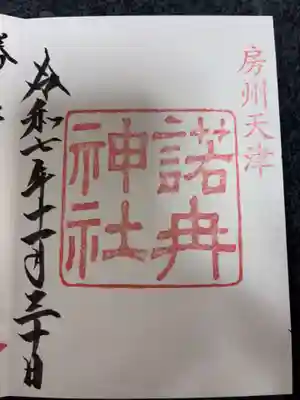 房州天津
諾冉
神社
令和七年十一月三十日